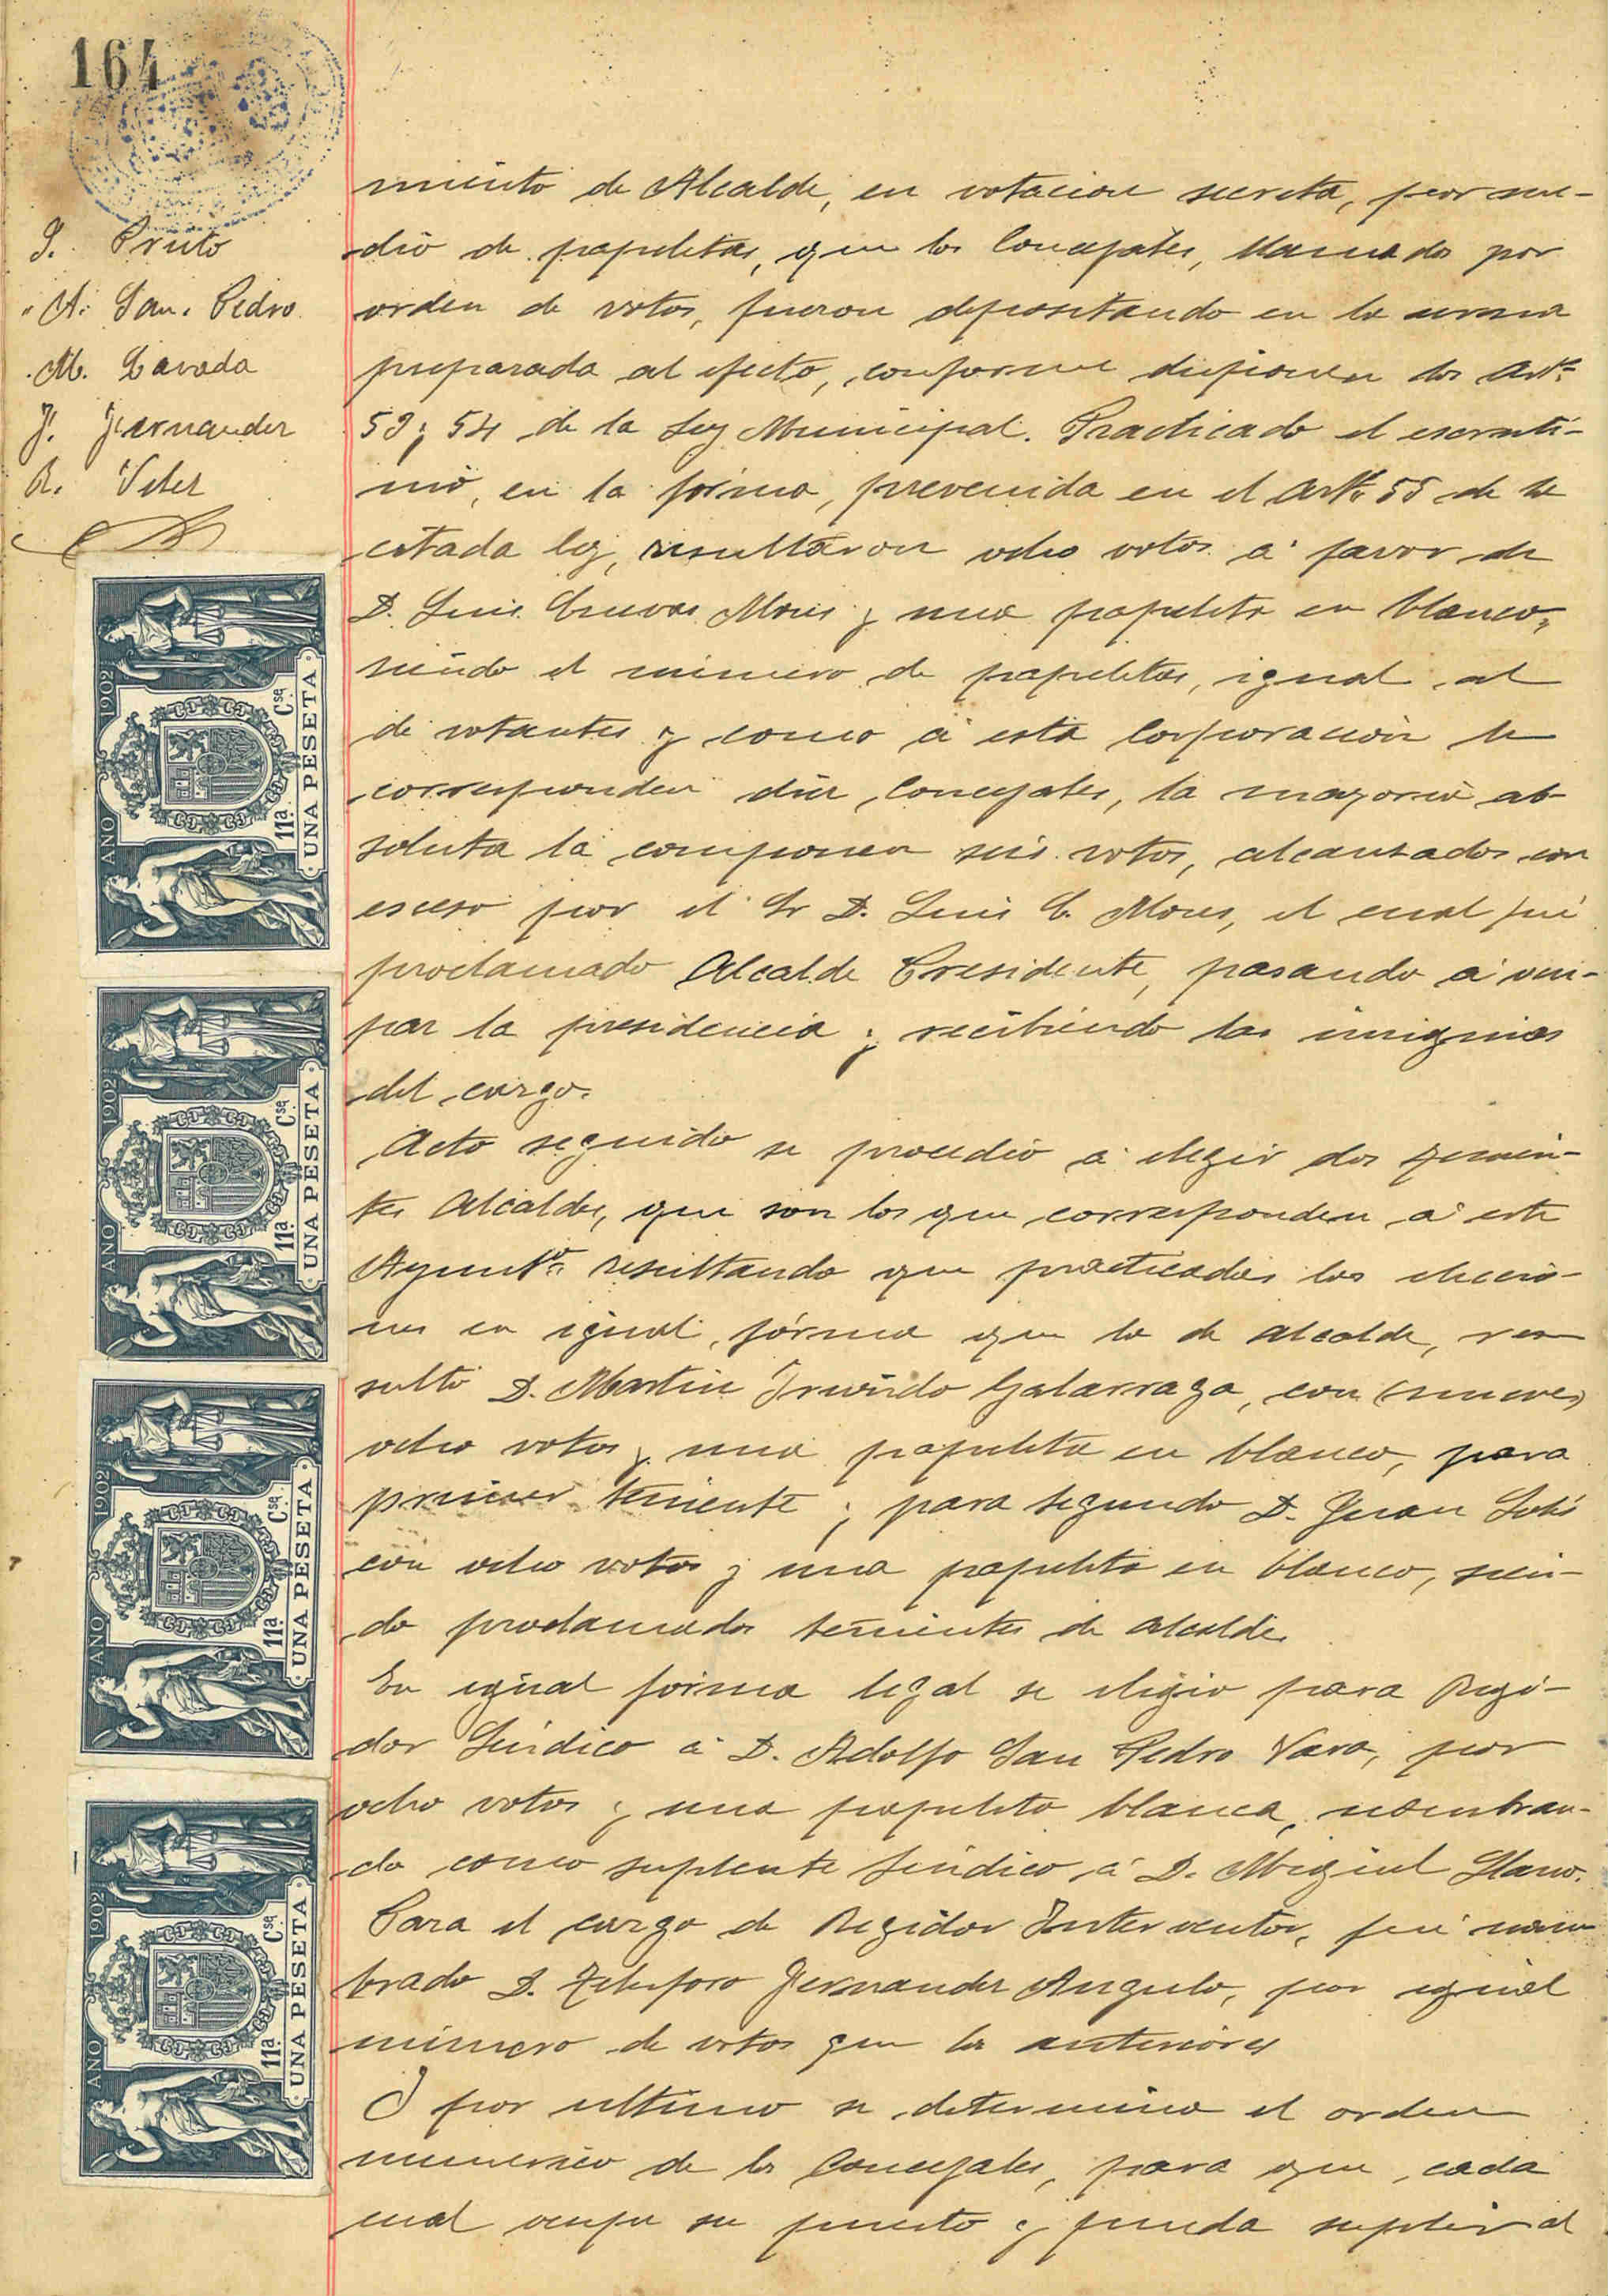 164
S. Prieto
A. San. Pedro
M. Zavada
F. Fernander
R. Veler
miento de Alcalde, en votacion secreta, por me-
dio de papeletas, que los Concejales, llamados por
orden de votos, fueron depositando en la urna
preparada al efecto, conforme disponen los artos
53 y 54 de la Ley Municipal. Practicado el escruti-
nio, en la forma, prevenida en el Arto 55 de la
citada ley, resultaron ocho votos á favor de
D. Luis Cuevas Mons y una papeleta en blanco,
siendo el número de papeletas, igual al
de votantes y como á esta Corporación le
corresponden diez Concejales, la mayoria ab-
soluta la componen seis votos, alcanzados con
esceso por el Sr D. Luis C. Mons, el cual fué
proclamado Alcalde Presidente, pasando á ocu-
par la presidencia y recibiendo las insignias
del cargo.
Acto seguido se procedió á elegir dos tenien-
tes Alcaldes, que son los que corresponden á este
Ayunto resultando que practicadas las eleccio-
nes en igual forma que la de alcalde, re
sultó D. Martin Irurido Galarraga, con (nueve)
ocho votos y una papeleta en blanco, para
primer teniente y para segundo D. Juan Solis
con ocho votos y una papeleta en blanco, sien-
do proclamados tenientes de alcalde.
En igual forma legal se eligio para Regi-
dor Síndico á D. Adolfo San Pedro Vara, por
ocho votos y una papeleta blanca, nombran-
do como suplente síndico á D. Miguel Llano.
Para el cargo de Regidor Interventor, fué nom
brado D. Telesforo Fernander Angulo, por igual
número de votos que los anteriores
Y por ultimo se determinó el orden
numerico de los Concejales, para que cada
cual ocupe su puesto y pueda suplir al
AÑO 1902
11ª Cse
UNA PESETA
AÑO 1902
11ª Cse
UNA PESETA
AÑO 1902
11ª Cse
UNA PESETA
AÑO 1902
11ª Cse
UNA PESETA